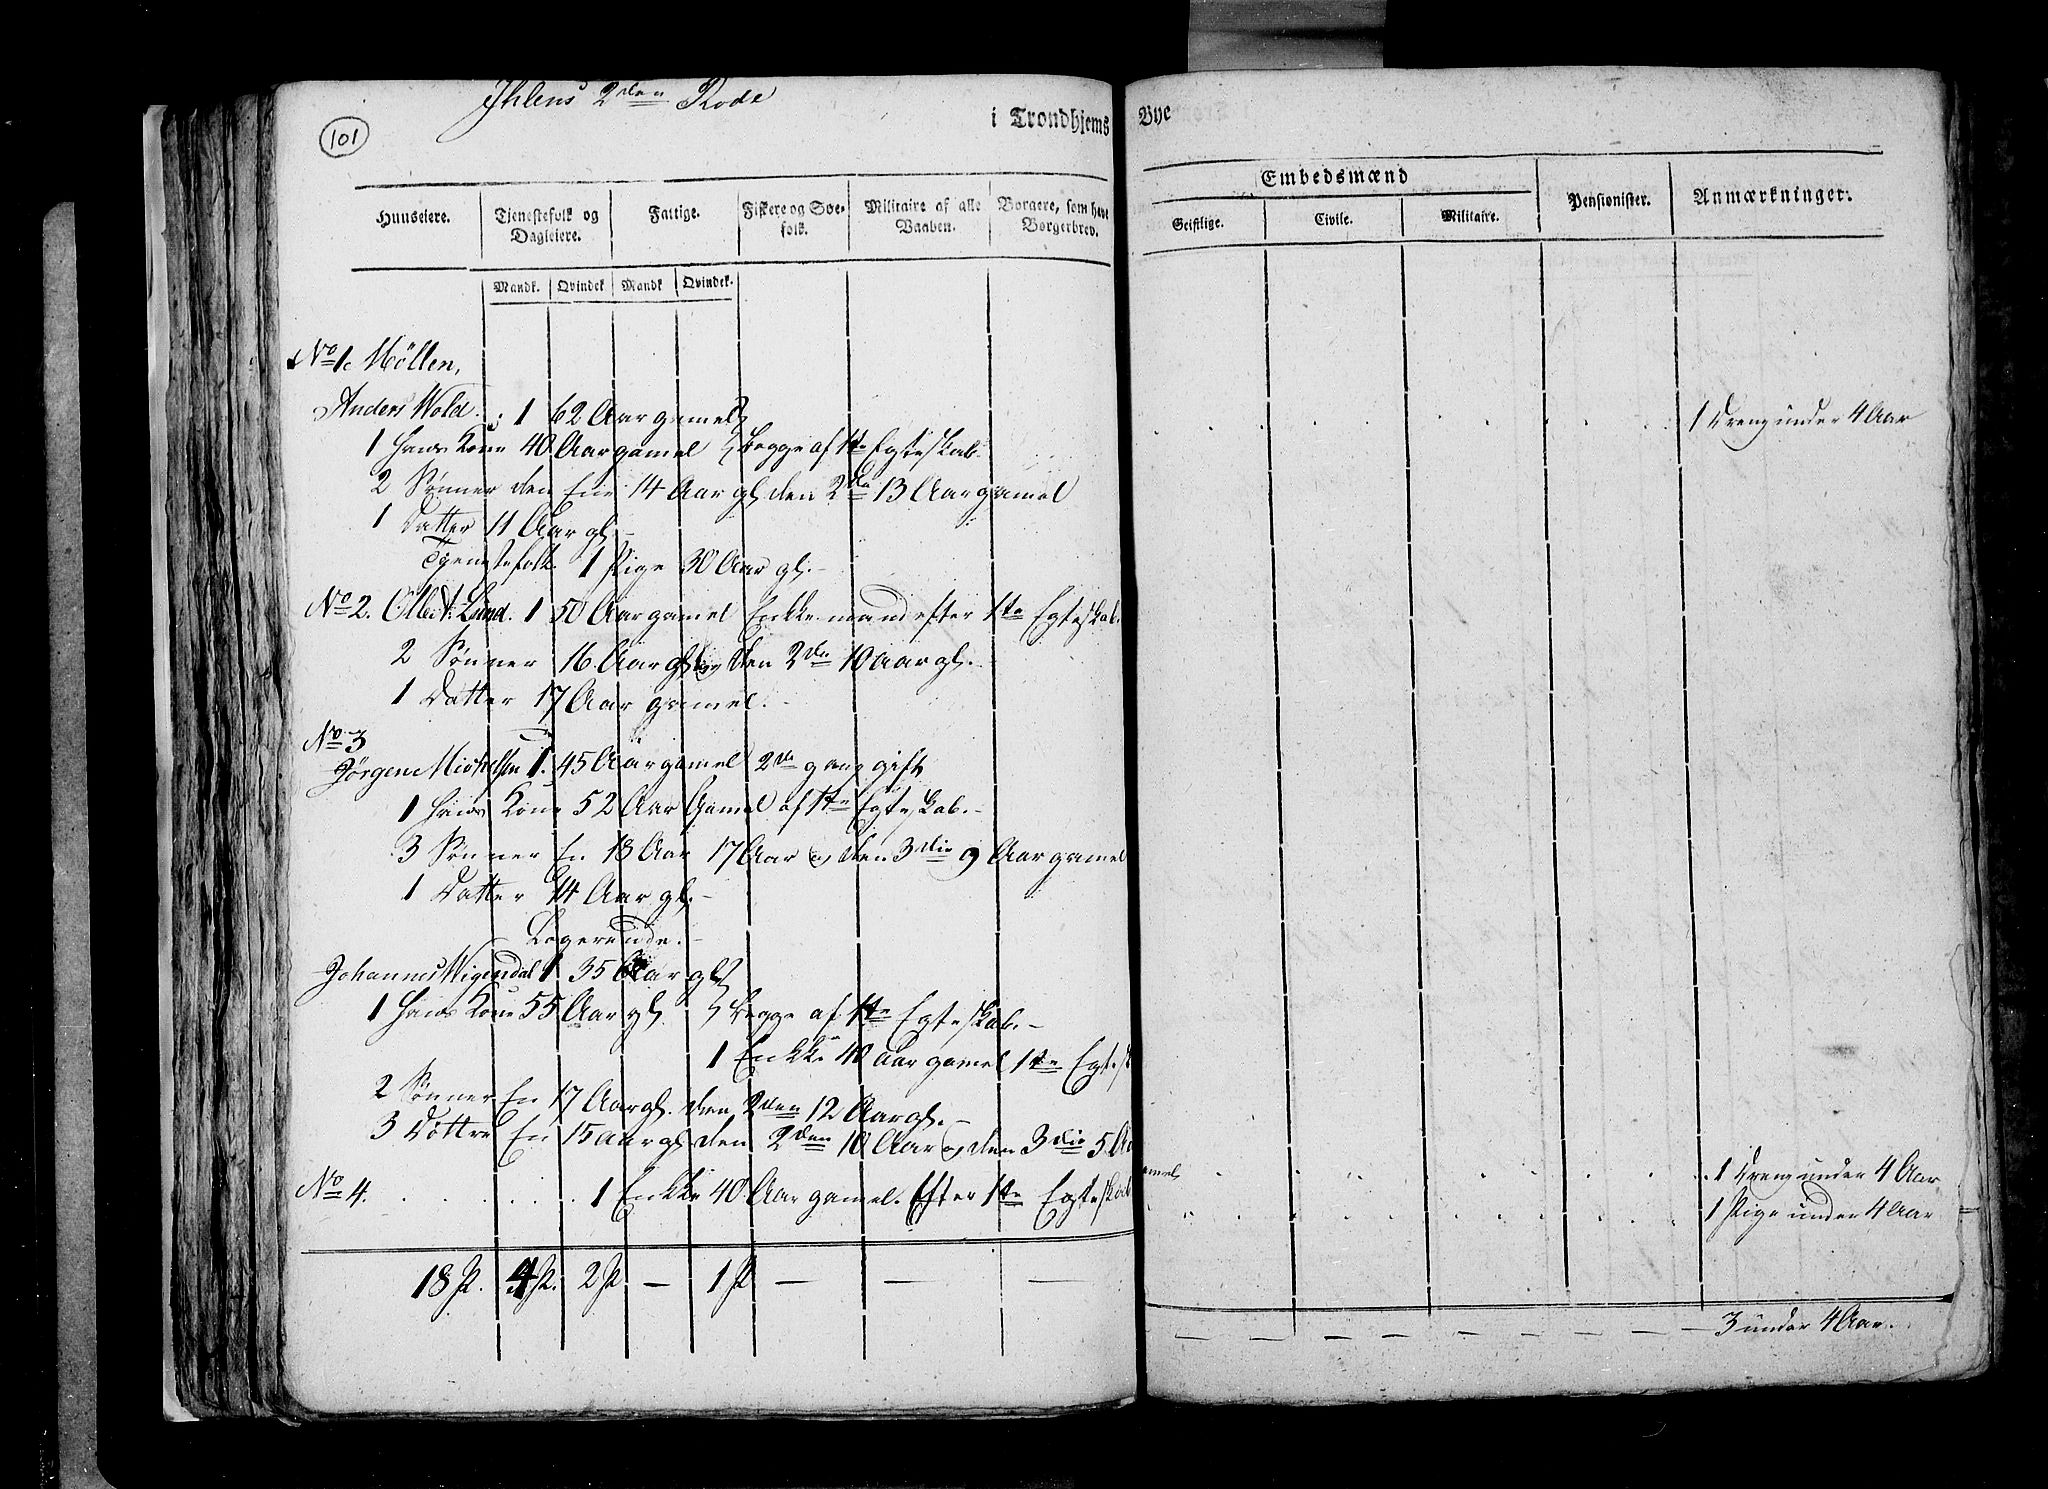 Ihlens 2den Rode
101
i Trondhjems Bye
Huuseiere. Tjenestefolk og Dagleiere. Fattige. Fiskere og Søefolk. Militaire af alle Vaaben. Borgere, som have Borgerbrev. Embedsmænd Pensionister. Anmærkninger.
Geistlige. Civile. Militaire.
Mandk. Qvindek Mandk Qvindek.
No 1. Möllen,
Anders Wold. 1 62 Aar gamel 1 Dreng under 4 Aar
1 Hans Kone 40 Aar gamel begge af 1te Egteskab.
2 Sønner den Ene 14 Aar gl den 2de 13 Aar gamel
1 Datter 11 Aar gl.
Tjenestefolk. 1 Pige 30 Aar gl.
No 2. Lund. 1 50 Aar gamel Enkkemand efter 1te Egteskab.
2 Sønner 16 Aar gl og den 2den 10 Aar gl.
1 Datter 17 Aar gamel.
No 3
Jørgen Michelsen 1. 45 Aar gamel 2de gang gift
1 Hans Kone 52 Aar Gamel af 1te Egteskab.
3 Sønner En 18 Aar 17 Aar og den 3die 9 Aar gamel
1 Datter 14 Aar gl.
Logerende.
Johannes Wigendal 1 35 Aar gl
1 Hans Kone 55 Aar gl. begge af 1te Egteskab.
1 Enkke 40 Aar gamel 1te Egtesk
2 Sønner En 17 Aar gl. den 2den 12 Aar gl.
3 Döttre En 15 Aar gl den 2den 10 Aar og den 3die 5 Aar gamel 1 Dreng under 4 Aar
No 4. 1 Enkke 40 Aar gamel. Efter 1te Egteskab 1 Pige under 4 Aar
18 P. 4 P. 2 P — 1 P — — —
3 under 4 Aar.